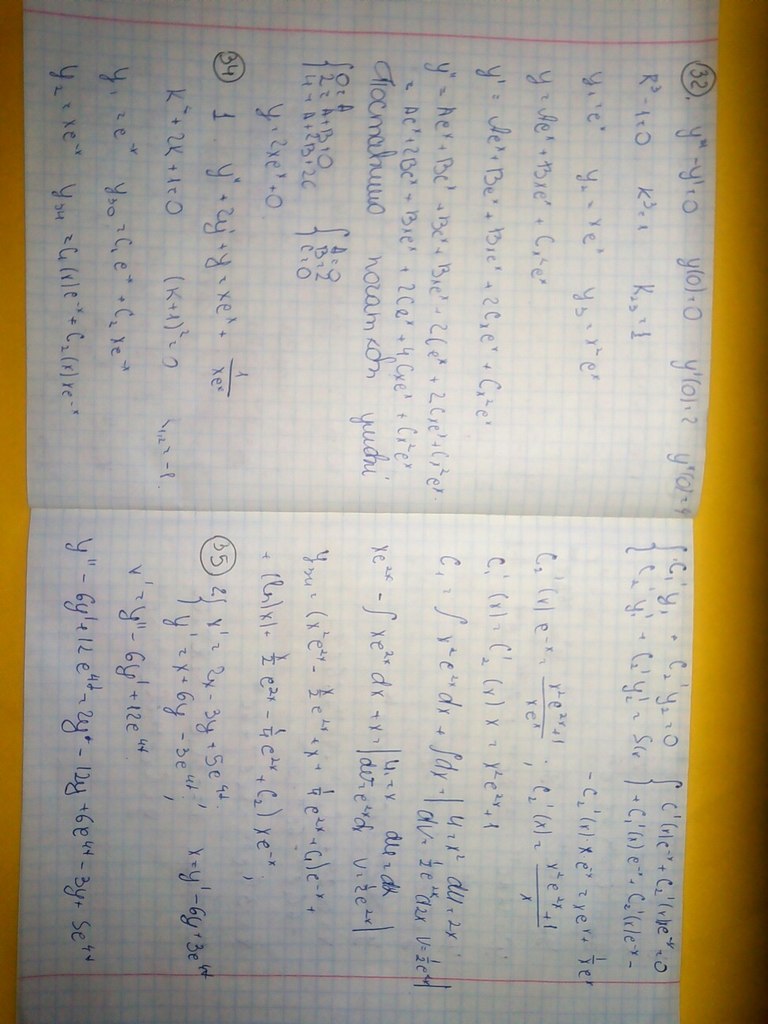 32. y''' - y' = 0 y(0)=0 y'(0)=2 y''(0)=4
K³-1=0 K³=1 K₂,₃=1
y₁=eˣ y₂=xeˣ y₃=x²eˣ
y=Aeˣ+Bxeˣ+Cx²eˣ
y'=Aeˣ+Beˣ+Bxeˣ+2Cxeˣ+Cx²eˣ
y''=Aeˣ+Beˣ+Beˣ+Bxeˣ+2Ceˣ+2Cxeˣ+Cx²eˣ
=Aeˣ+2Beˣ+Bxeˣ+2Ceˣ+4Cxeˣ+Cx²eˣ
Поставимо початкові умови
{0=A {A=0
{2=A+B+0 {B=2
{4=A+2B+2C {C=0
y=2xeˣ+0
34 1. y''+2y'+y=xeˣ+1/(xeˣ)
K²+2K+1=0 (K+1)²=0 K₁,₂=-1
y₁=e⁻ˣ y₃₀=C₁e⁻ˣ+C₂xe⁻ˣ
y₂=xe⁻ˣ y₃ₙ=C₁(x)e⁻ˣ+C₂(x)xe⁻ˣ
{C₁'y₁+C₂'y₂=0 {C₁'(x)e⁻ˣ+C₂'(x)xe⁻ˣ=0
{C₁'y₁'+C₂'y₂'=S(x) {+C₁'(x)e⁻ˣ+C₂'(x)e⁻ˣ-
-C₂'(x)xe⁻ˣ=xeˣ+1/(xeˣ)
C₂'(x)e⁻ˣ=(x²e²ˣ+1)/(xeˣ); C₂'(x)=(x²e²ˣ+1)/x
C₁'(x)=C₂'(x)x=x²e²ˣ+1
C₁=∫x²e²ˣdx+∫dx=|u=x² du=2x
dV=½e²ˣd2x V=½e²ˣ|
xe²ˣ-∫xe²ˣdx+x=|u₁=x du=dx
dV=e²ˣdx V=½e²ˣ|
y₃ₙ=(x²e²ˣ-x/2e²ˣ+x+¼e²ˣ+C₁)e⁻ˣ+
+(ln|x|+x/2e²ˣ-¼e²ˣ+C₂)xe⁻ˣ;
35 2) {x'=2x-3y+5e⁴ˣ;
{y'=x+6y-3e⁴ˣ; x=y'-6y+3e⁴ˣ
v'=y''-6y'+12e⁴ˣ
y''-6y'+12e⁴ˣ=2y'-12y+6e⁴ˣ-3y+5e⁴ˣ